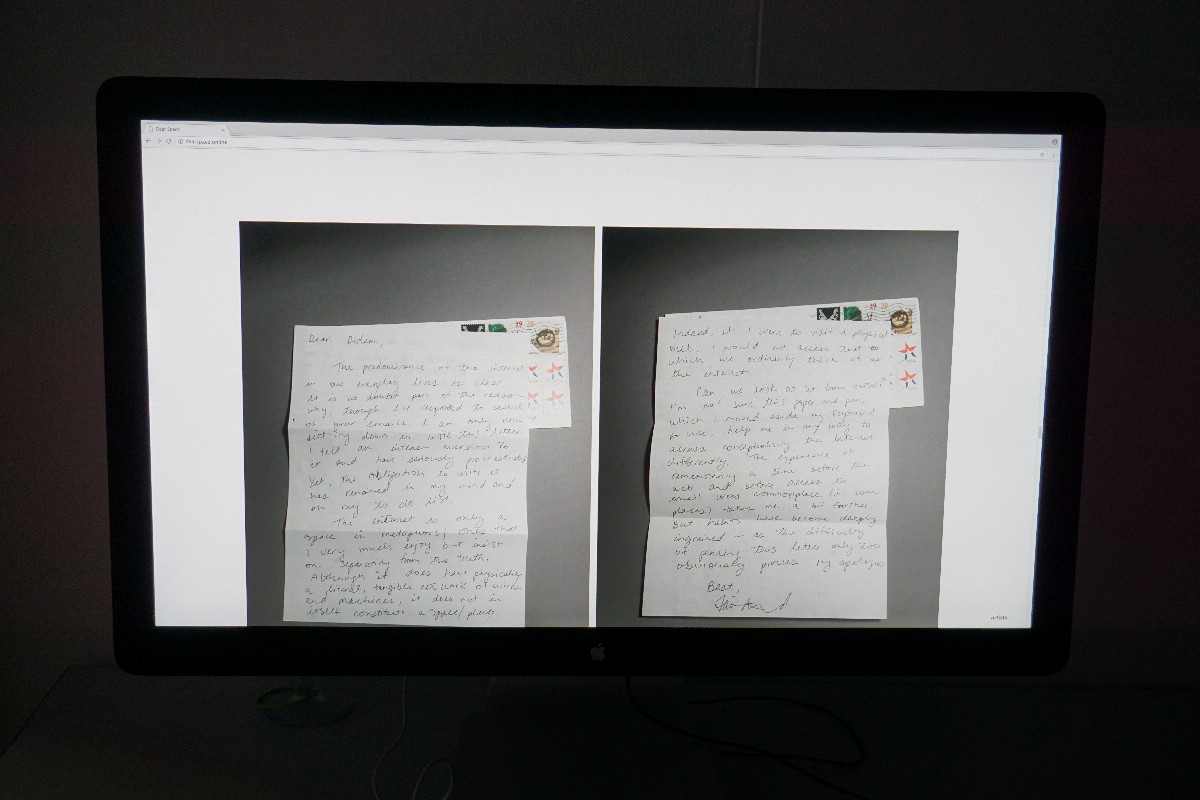 Dear Space
dearspace.online
Dear
The predominance of the internet
in our everyday lives is clear
It is no doubt part of the reason
why, though I've responded to several
of your emails I am only now
sitting down to write this letter
I felt an intense aversion to
it and have seriously procrastinated
Yet, the obligation to write it
has remained in my mind and
on my to do list.
The internet is only a
space in metaphors; ones that
I very much enjoy but insist
on separating from the truth.
Although it does have physicality
a literal, tangible network of wires
and machines, it does not in
itself constitute a space/place.
Indeed, if I were to visit a physical
I would not access that to
which we ordinarily think of as
the internet
Can we look at it from outside?
I'm not sure this paper and pen,
which I moved aside my keyboard
to use, help me in any way to
access conceptualizing the internet
differently. The experience of
remembering a time before the
web and before access to
email was commonplace (in some
places) takes me a bit further
But habits have become deeply
ingrained - as the difficulty
of penning this letter only too
obviously proves. My apologies
Best,
artists